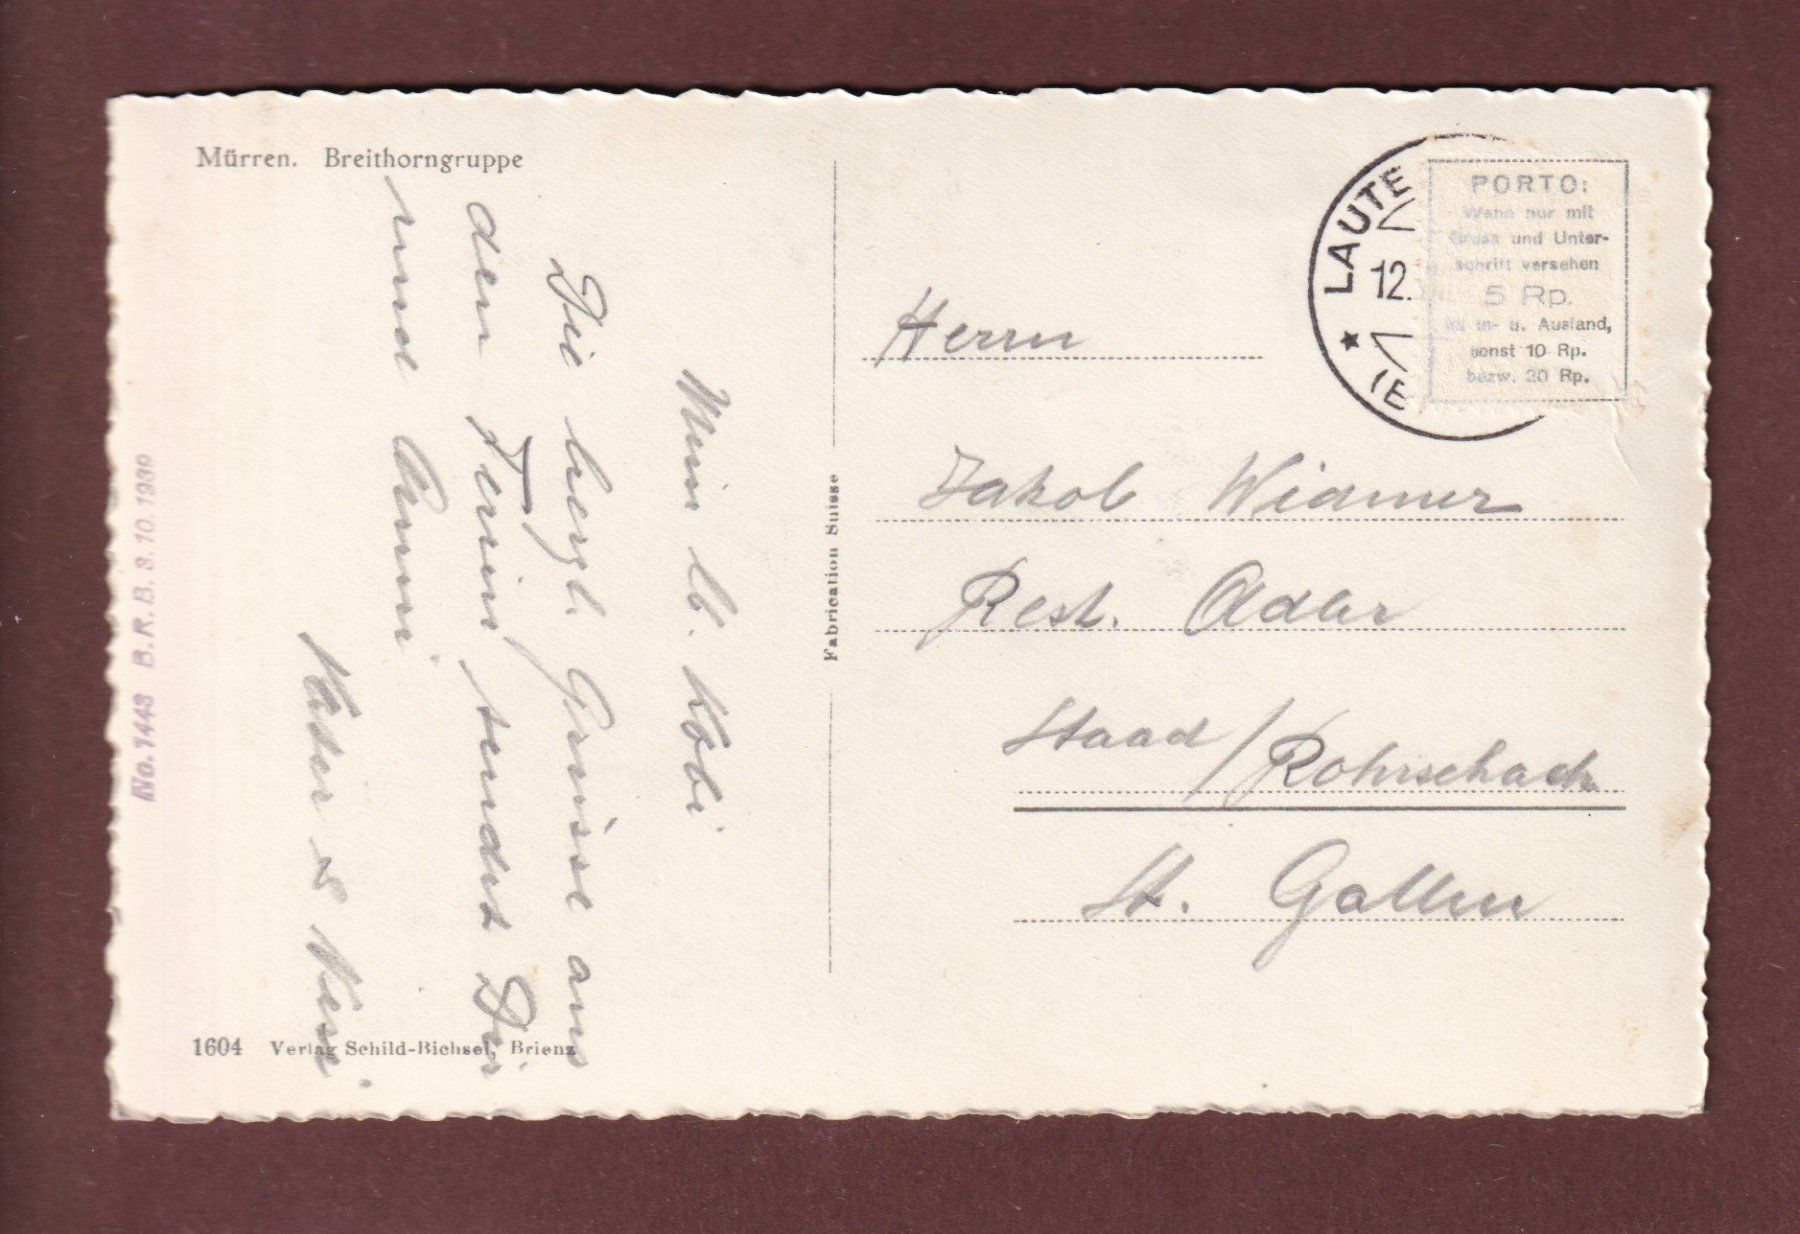 Mürren. Breithorngruppe
Mein lb. Köbi
Die herzl. Grüsse aus
den Ferien sendet Dir
und Anni
Vater & Vesi
No. 7443 B.R.B. 3.10.1939
1604 Verlag Schild-Bichsel, Brienz
Fabrication Suisse
LAUTE
12.
(E
PORTO:
Wenn nur mit
Gruss und Unter-
schrift versehen
5 Rp.
im In- u. Ausland,
sonst 10 Rp.
bezw. 20 Rp.
Herrn
Jakob Widmer
Rest. Adler
Staad/Rohrschach
St. Gallen